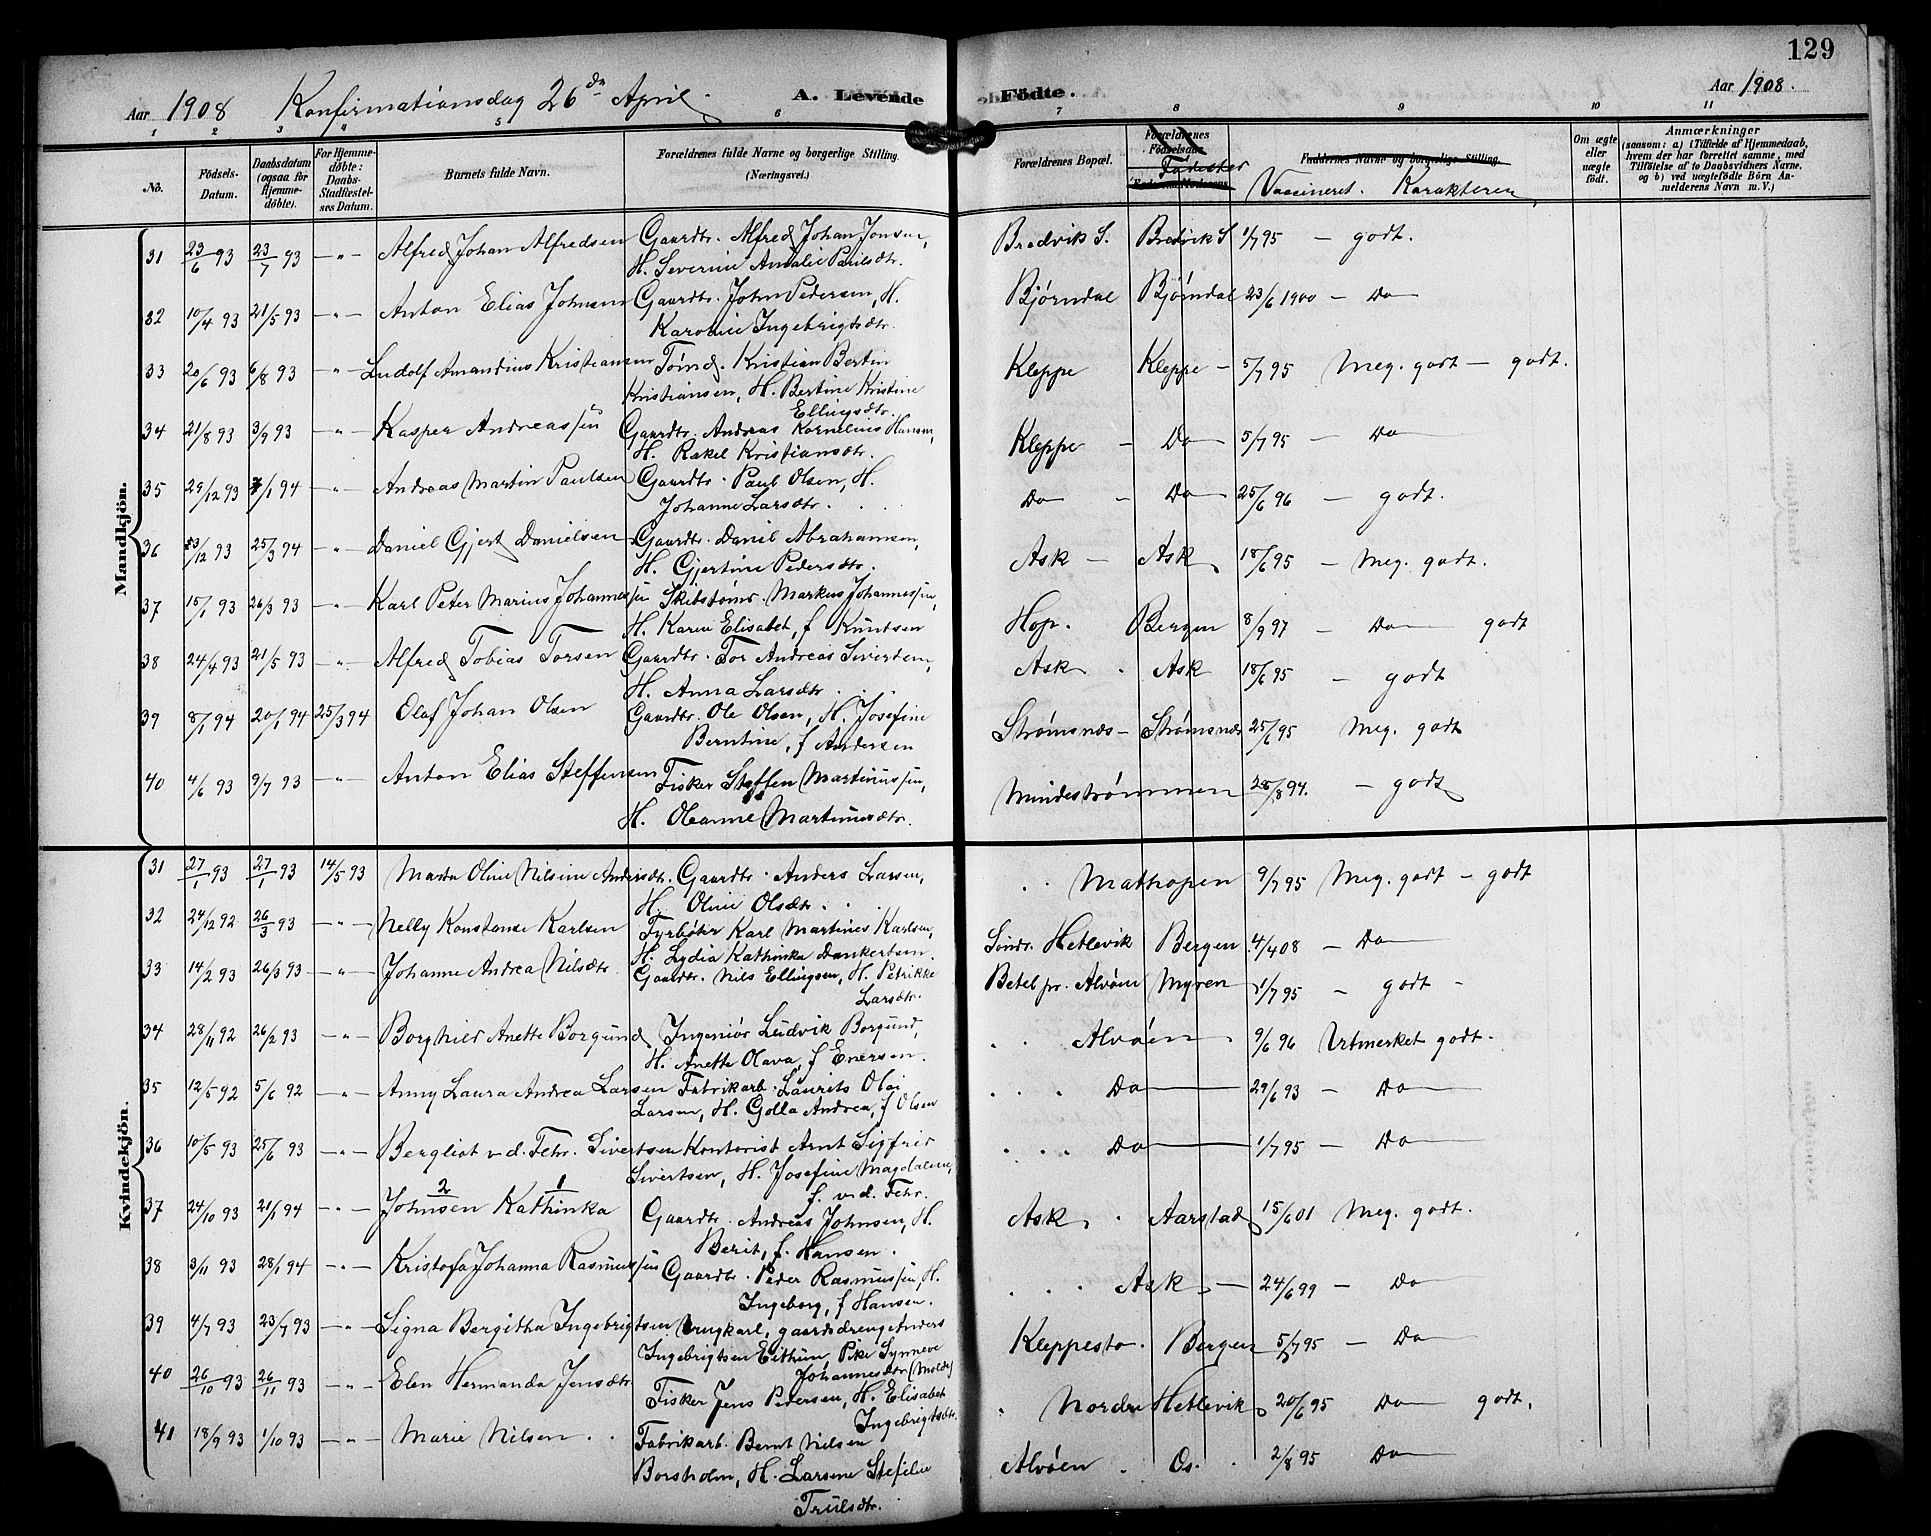 129
Aar 1908 Konfirmationsdag 26de April. A. Levende Födte. Aar 1908.
1 2 3 4 5 6 7 8 9 10 11
No. Födsels-Datum. Daabsdatum (ogsaa for Hjemme-döbte). For Hjemme-döbte: Daabs-Stadfæstel-ses Datum. Burnets fulde Navn. Forældrenes fulde Navne og borgerlige Stilling. (Næringsvei.) Forældrenes Bopæl. Forældrenes Födselsaar. Fødester Faddernes Navne og borgerlige Stilling. Vaccineret. Karakteren Om ægte eller uægte födt. Anmærkninger (saasom: a) i Tilfælde af Hjemmedaab, hvem der har forrettet samme, med Tilföielse af to Daabsvidners Navne, og b) ved uægtefödte Börn An-melderens Navn m. V.)
Mandkjön.
31 23/6 93 23/7 93 — " — Alfred Johan Alfredsen Gaardbr. Alfred Johan Jonsen, Bredvik S. Bredvik S 1/7 95 — godt.
H. Severine Amalie Paulsdtr.
32 10/4 93 21/5 93 — " — Anton Elias Johnsen Gaardbr. John Pedersen, H. Bjørndal Bjørndal 23/6 1900 — Do
Karoline Ingebrigtsdtr.
33 20/6 93 6/8 93 — " — Ludolf Amandius Kristiansen Tømd. Kristian Bertin Kleppe Kleppe — 5/7 95 Meg. godt — godt.
Kristiansen, H. Bertine Kristine
Ellingsdtr.
34 21/8 93 3/9 93 — " — Kasper Andreassen Gaardbr. Andreas Kornelius Hansen, Kleppe — Do 5/7 95 — Do
H. Rakel Kristiansdtr.
35 29/12 93 /1 94 — " — Andreas Martin Paulsen Gaardbr. Paul Olsen, H. Do — Do 25/6 96 — godt.
Johanne Larsdtr.
36 /12 93 25/3 94 — " — Daniel Gjert Danielsen Gaardbr. Daniel Abrahamsen, Ask — Ask 18/6 95 — Meg. godt.
H. Gjertine Pedersdtr.
37 15/1 93 26/3 93 — " — Karl Peter Marius Johannessen Skibstømr. Markus Johannessen, Hop. Bergen 8/9 97 — Do godt
H. Karen Elisabet, f Knutsen
38 24/4 93 21/5 93 — " — Alfred Tobias Torsen Gaardbr. Tor Andreas Sivertsen, Ask . Ask 18/6 95 — godt
H. Anna Larsdtr.
39 8/1 94 20/1 94 25/3 94 Olaf Johan Olsen Gaardbr. Ole Olsen, H. Josefine Strømsnæs — Strømsnæs 25/6 95 Meg. godt
Berntine, f Andersen
40 4/6 93 9/7 93 — " — Anton Elias Steffensen Fisker Steffen Martinussen, Mindestrømmen 28/8 94. — godt
H. Oleanne Martinusdtr.
Kvindekjön.
31 27/1 93 27/1 93 14/5 93 Marta Oline Nilsine Andersdtr. Gaardbr. Anders Larsen, Mathopen 9/7 95 Meg. godt — godt
H. Oline Olsdtr.
32 24/12 92 26/3 93 — " — Nelly Konstanse Karlsen Fyrbøter Karl Martines Karlsen, Søndr. Hetlevik Bergen 4/4 08 — Do
H. Lydia Kathinka Dankertsen.
33 14/2 93 26/3 93 — " — Johanne Andrea Nilsdtr. Gaardbr. Nils Ellingsen, H. Petrikke Betel pr. Alvøen Myren 1/7 95 — godt —
Larsdtr.
34 28/11 92 26/2 93 — " — Borghild Anette Borgund Ingeniør Ludvik Borgund, Alvøen 9/6 96 Utmerket godt.
H. Anette Olava, f Enersen.
35 12/5 92 5/6 92 — " — Anny Laura Andrea Larsen Fabrikarb. Laurits Olai Do 29/6 93 — Do
Larsen, H. Golla Andrea, f Olsen
36 10/5 93 25/6 93 — " — Bergliot v. d. Fehr. Sivertsen Kontorist Arnt Sigfrid Do 1/7 95 — Do
Sivertsen, H. Josefine Magdalene,
f. v. d. Fehr.
37 24/10 93 21/1 94 — " — Johnsen 2 Kathinka 1 Gaardbr. Andreas Johnsen, H. Ask . Aarstad 15/6 01 Meg. godt.
Berit, f. Hansen.
38 3/11 93 28/1 94 — " — Kristofa Johanna Rasmussen Gaardbr. Peder Rasmussen H. Ask — 24/6 99 — Do
Ingeborg, f Hansen.
39 4/7 93 23/7 93 — " — Signa Bergitha Ingebrigtsen Ungkarl, gaardsdreng Anders Kleppestø. Bergen 5/7 95 — Do
Ingebrigtsen Eithun, Pike Synneve
Johannesdtr (Molde)
40 26/10 93 26/11 93 — " — Elen Hermanda Jensdtr. Fisker Jens Pedersen, H. Elisabet Nordre Hetlevik 20/6 95 Do godt.
Ingebrigtsdtr.
41 18/9 93 1/10 93 — " — Marie Nilsen . . Fabrikarb. Bernt Nilsen Alvøen . Os. 2/8 95 Do
Borsholm, H. Larsine Stefelie
Trulsdtr.